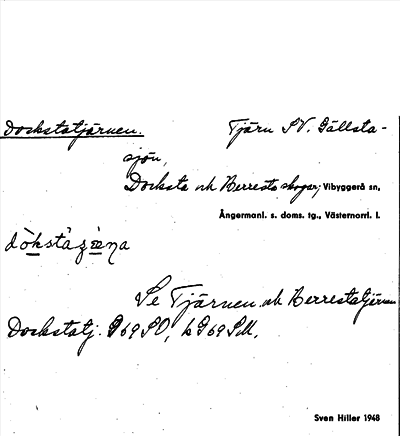 Dockstatjärnen. Tjärn SV. Gällsta-
sjön,
Docksta och Berresta skogar; Vibyggerå sn,
Ångermanl. s. doms. tg., Västernorrl. l.
Se Tjärnen och Berrestatjärnen
Dockstatj. G69SO, k G69SM.
Sven Hiller 1948